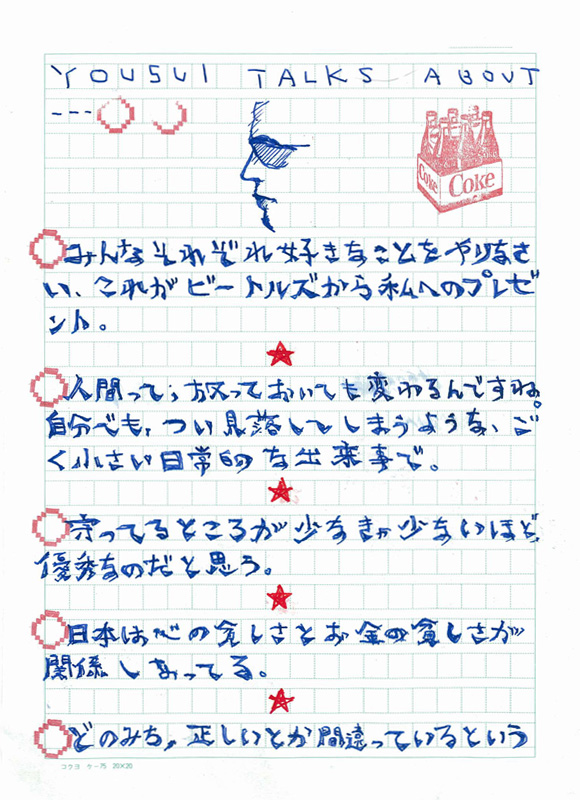 YOUSUI TALKS ABOUT
---
Coke
Coke
みんなそれぞれ好きなことをやりなさ
い、これがビートルズから私へのプレゼ
ント。
人間って、放っておいても変わるんですね。
自分でも、つい見落してしまうような、ご
く小さい日常的な出来事で。
守ってるところが少なきゃ少ないほど、
優秀なのだと思う。
日本は心の貧しさとお金の貧しさが
関係しあってる。
どのみち、正しいとか間違っているという
コクヨ ケ-75 20×20